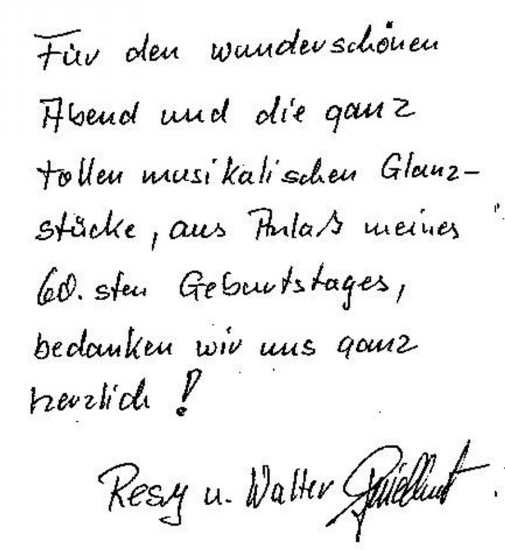 Für den wunderschönen
Abend und die ganz
tollen musikalischen Glanz-
stücke, aus Anlaß meines
60.sten Geburtstages,
bedanken wir uns ganz
herzlich!
Resy u. Walter